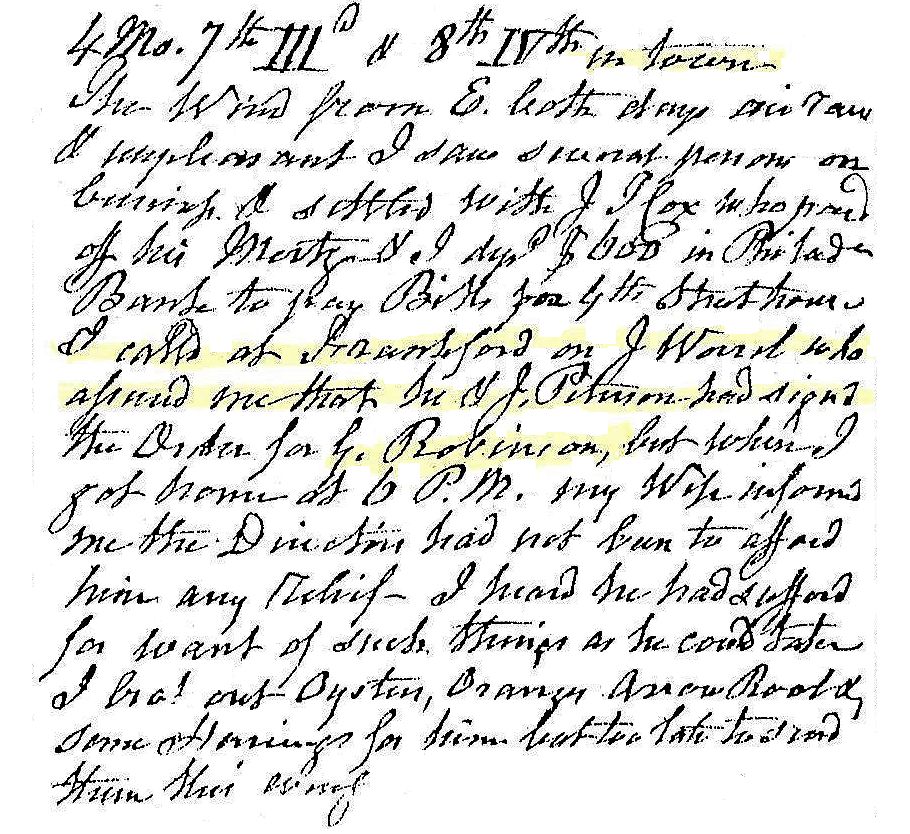 4 Mo. 7th IIId & 8th IVth in town
The Wind from E. both days air raw
& unpleasant I saw several persons on
business & settled with J T Cox who paid
off his Mortg & I depd $600 in Philada
Bank to pay Bills for 4th Street house
I calld at Frankford on J Worrel who
assured me that he & J. Peterson had signd
the Order for G. Robinson, but when I
got home at 6 P.M. my Wife informd
me the Director had not been to afford
him any Relief - I heard he had sufferd
for want of such things as he coud take
I brot out Oysters, Oranges Arrow Root &
some Herrings for him but too late to send
them this eveng